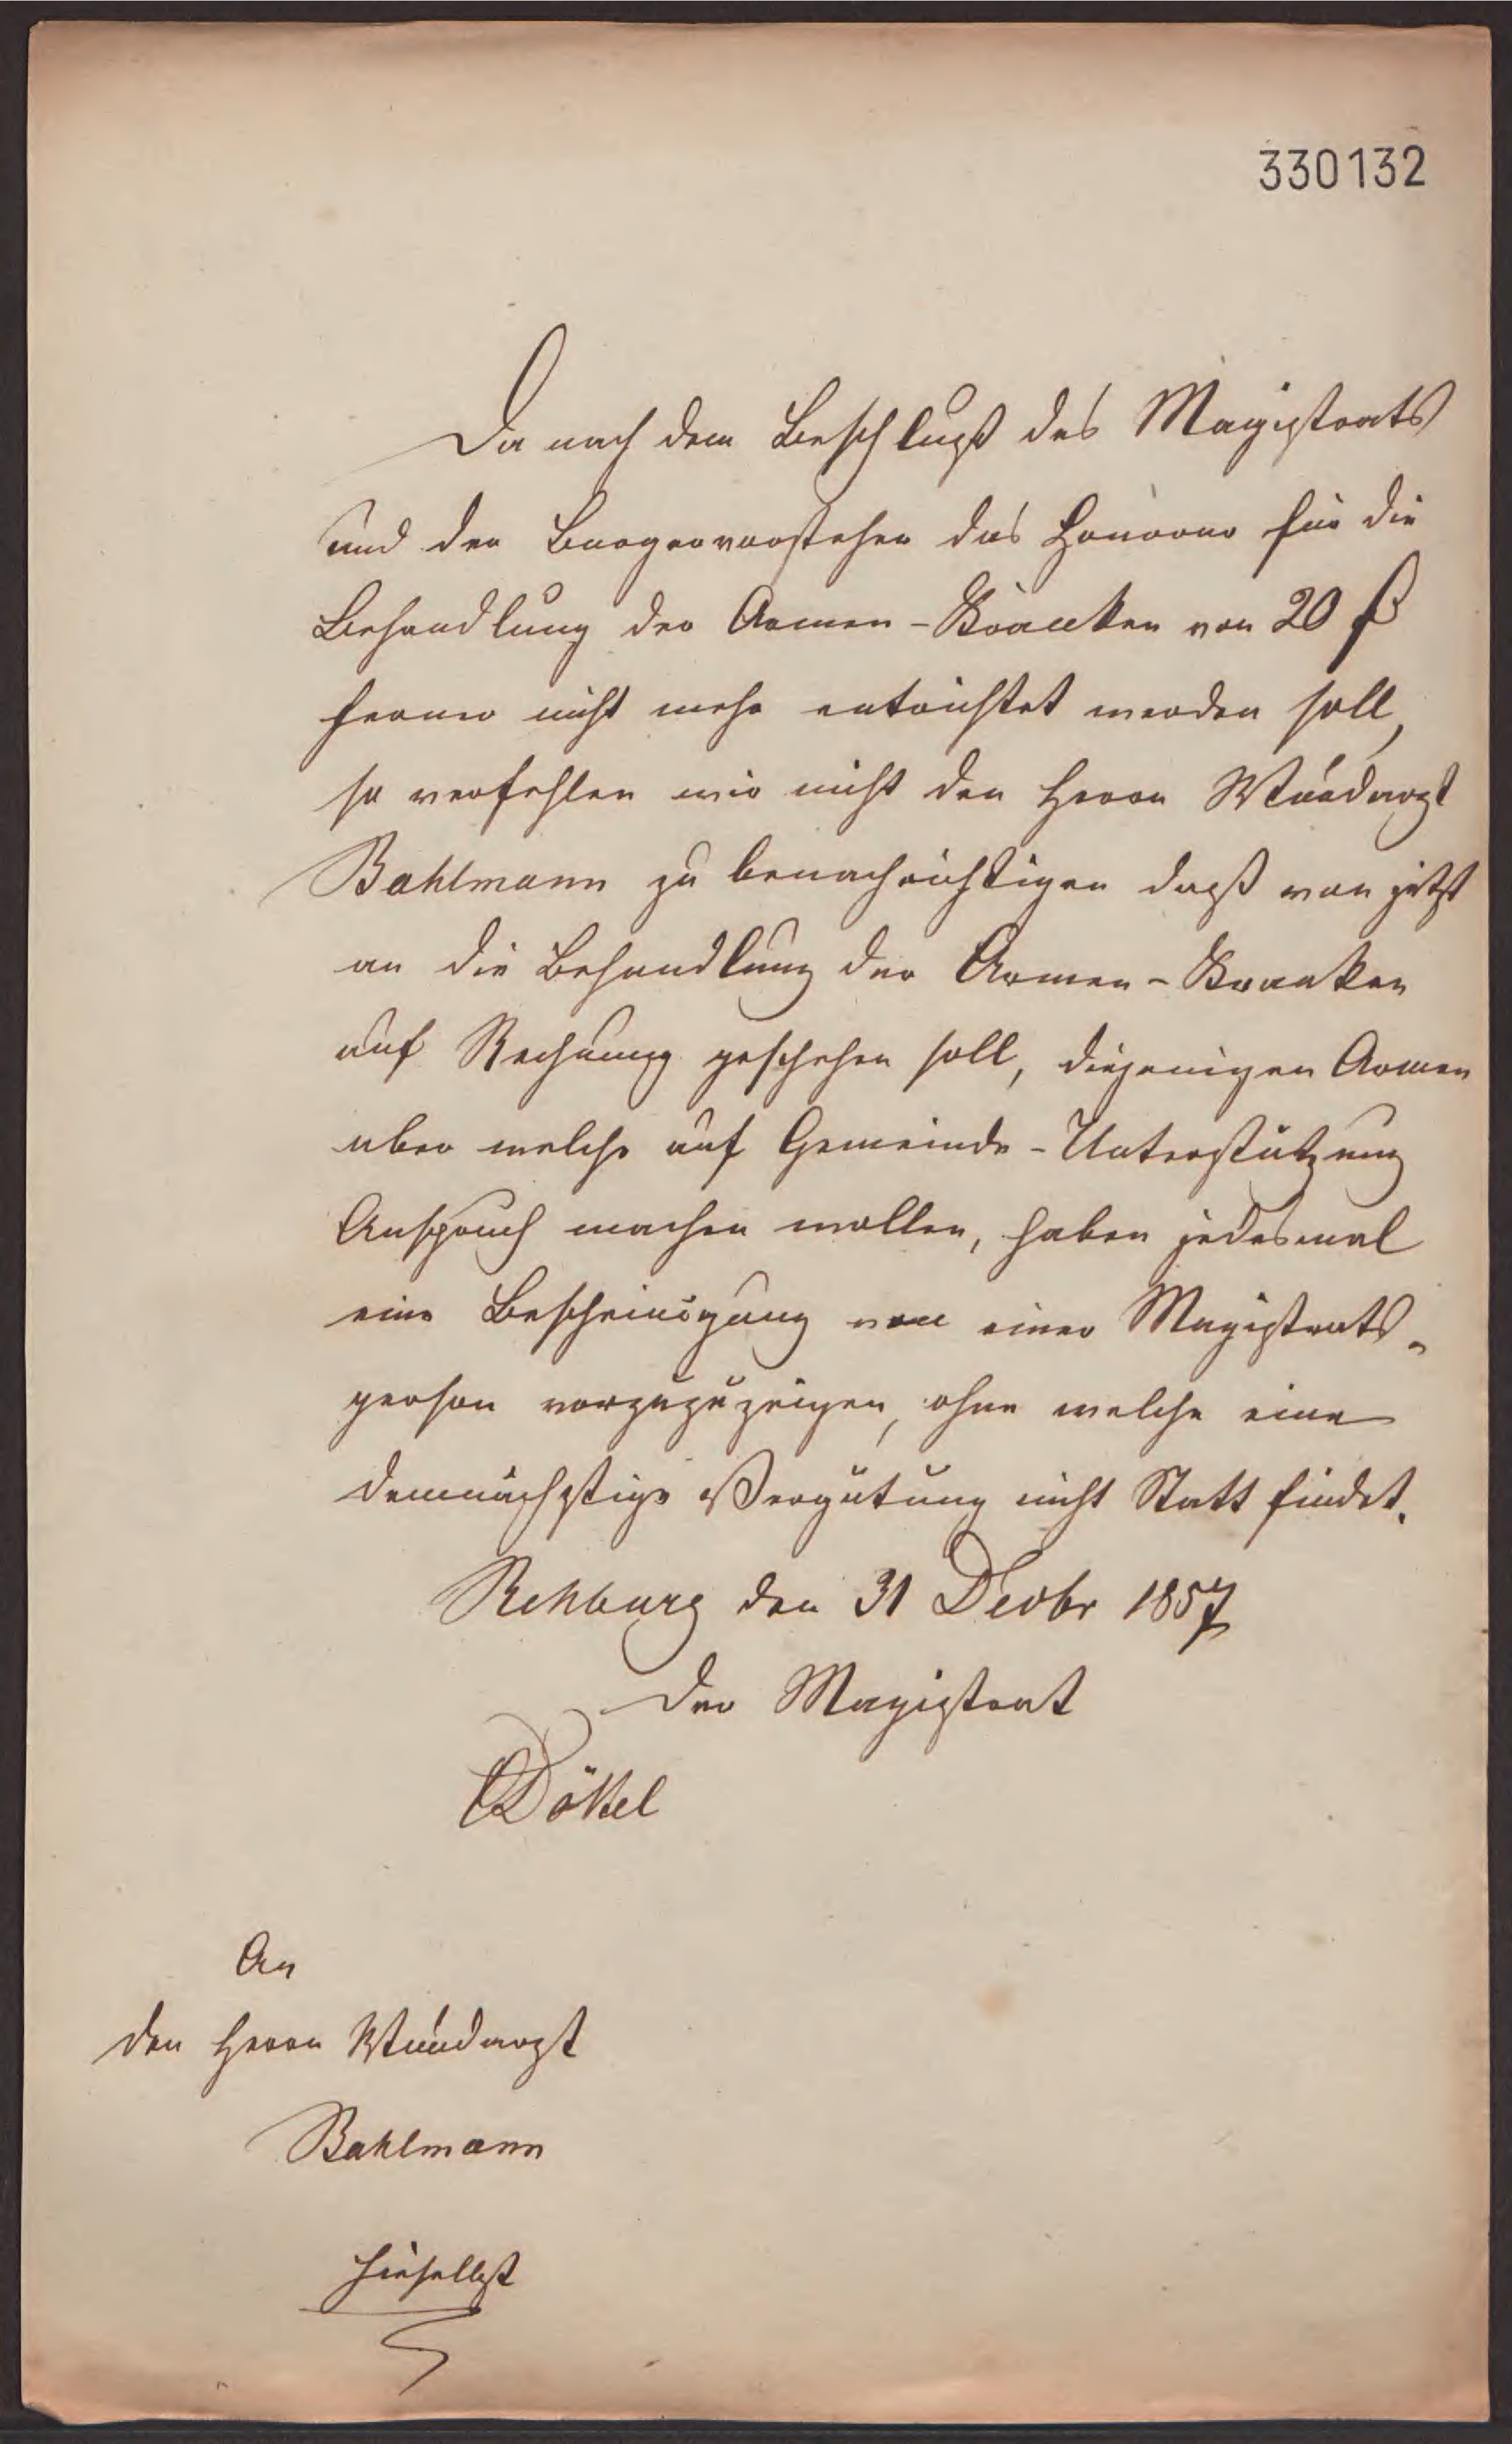 330132
Da nach dem Beschluß des Magistrats
und der Burgervorsteher das Honorar für die
Behandlung der Armen-Krancken von 20 ₰
ferner nicht mehr entrichtet werden soll,
so verfehlen wir nicht den Herrn Wundarzt
Bahlmann zu benachrichtigen daß von jetzt
an die Behandlung der Armen-Kranken
auf Rechnung geschehen soll, diejenigen Armen
aber welche auf Gemeinde-Unterstützung
Anspruch machen wollen, haben jedesmal
eine Bescheinigung von einer Magistrats-
person vorzuzuzeigen, ohne welche eine
demnächstige Vergütung nicht Statt findet.
Rehburg den 31 Decbr 1857
Der Magistrat
Dökel
An
den Herrn Wundarzt
Bahlmann
hieselbst